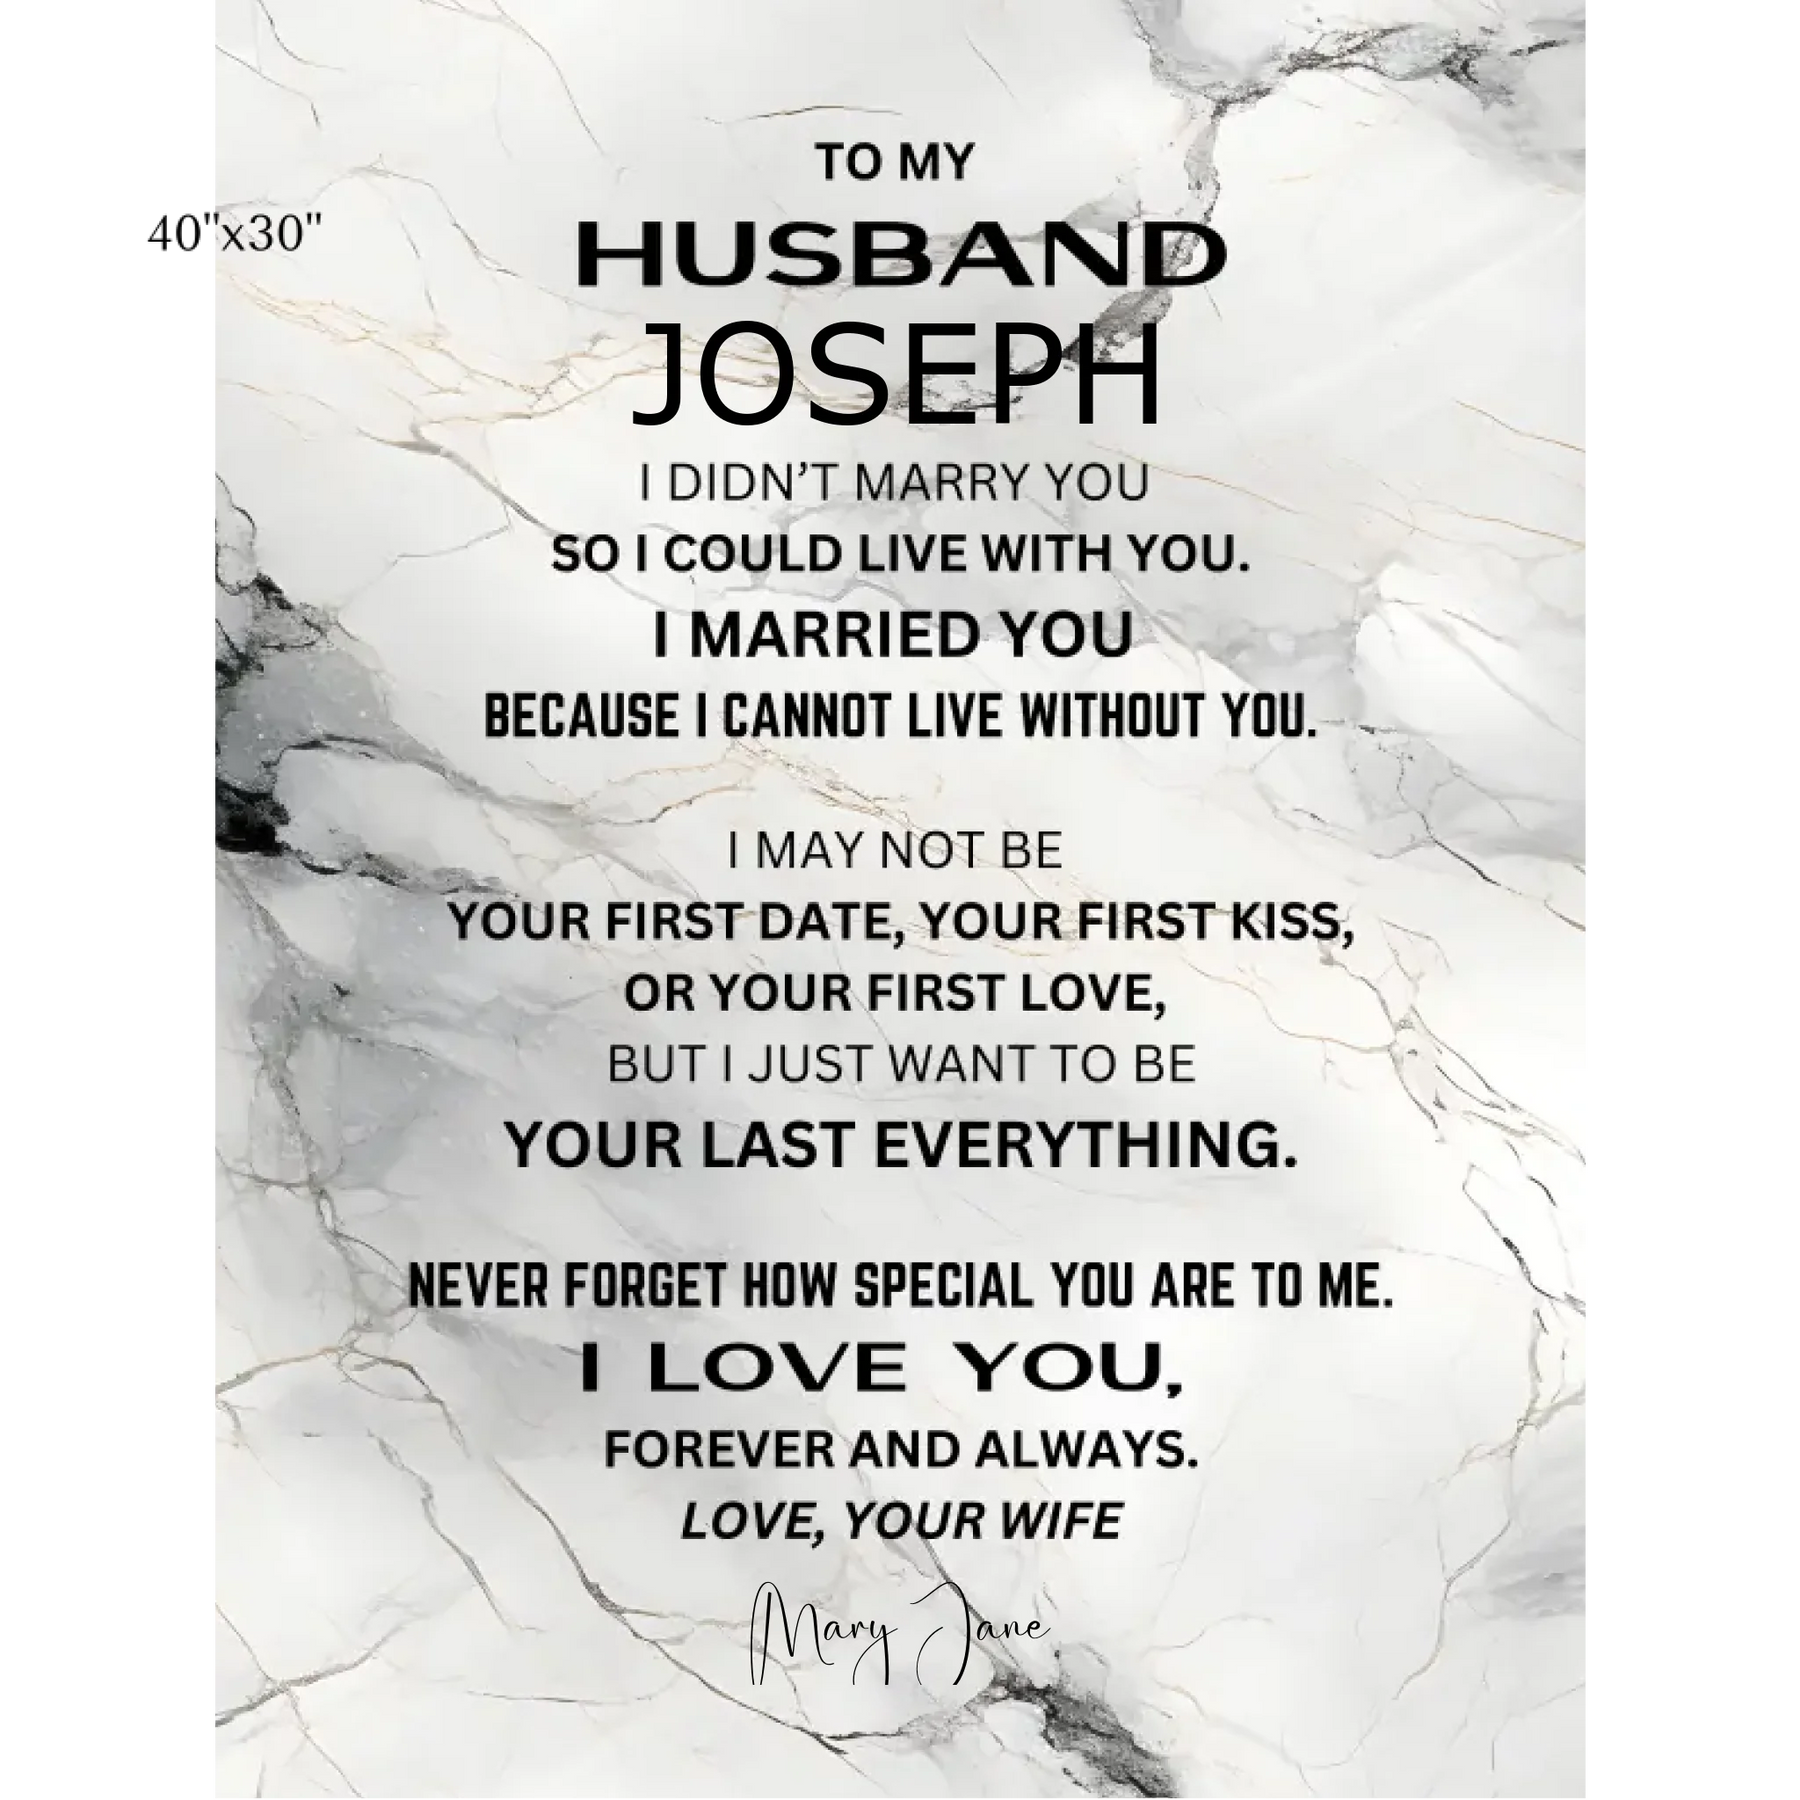 TO MY
40"x30"
HUSBAND
JOSEPH
I DIDN’T MARRY YOU
SO I COULD LIVE WITH YOU.
I MARRIED YOU
BECAUSE I CANNOT LIVE WITHOUT YOU.
I MAY NOT BE
YOUR FIRST DATE, YOUR FIRST KISS,
OR YOUR FIRST LOVE,
BUT I JUST WANT TO BE
YOUR LAST EVERYTHING.
NEVER FORGET HOW SPECIAL YOU ARE TO ME.
I LOVE YOU,
FOREVER AND ALWAYS.
LOVE, YOUR WIFE
Mary Jane